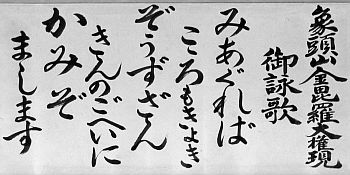 象頭山金毘羅大権現
御詠歌
みあぐれば
こころもきよき
ぞうずざん
きんのごへいに
かみぞ
まします